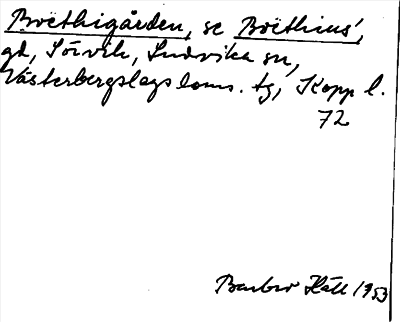 Boëthigården, se Boëthius',
gd, Sörvik, Ludvika sn,
Västerbergslags doms. tg, Kopp l.
72
Barbro Häll 1953